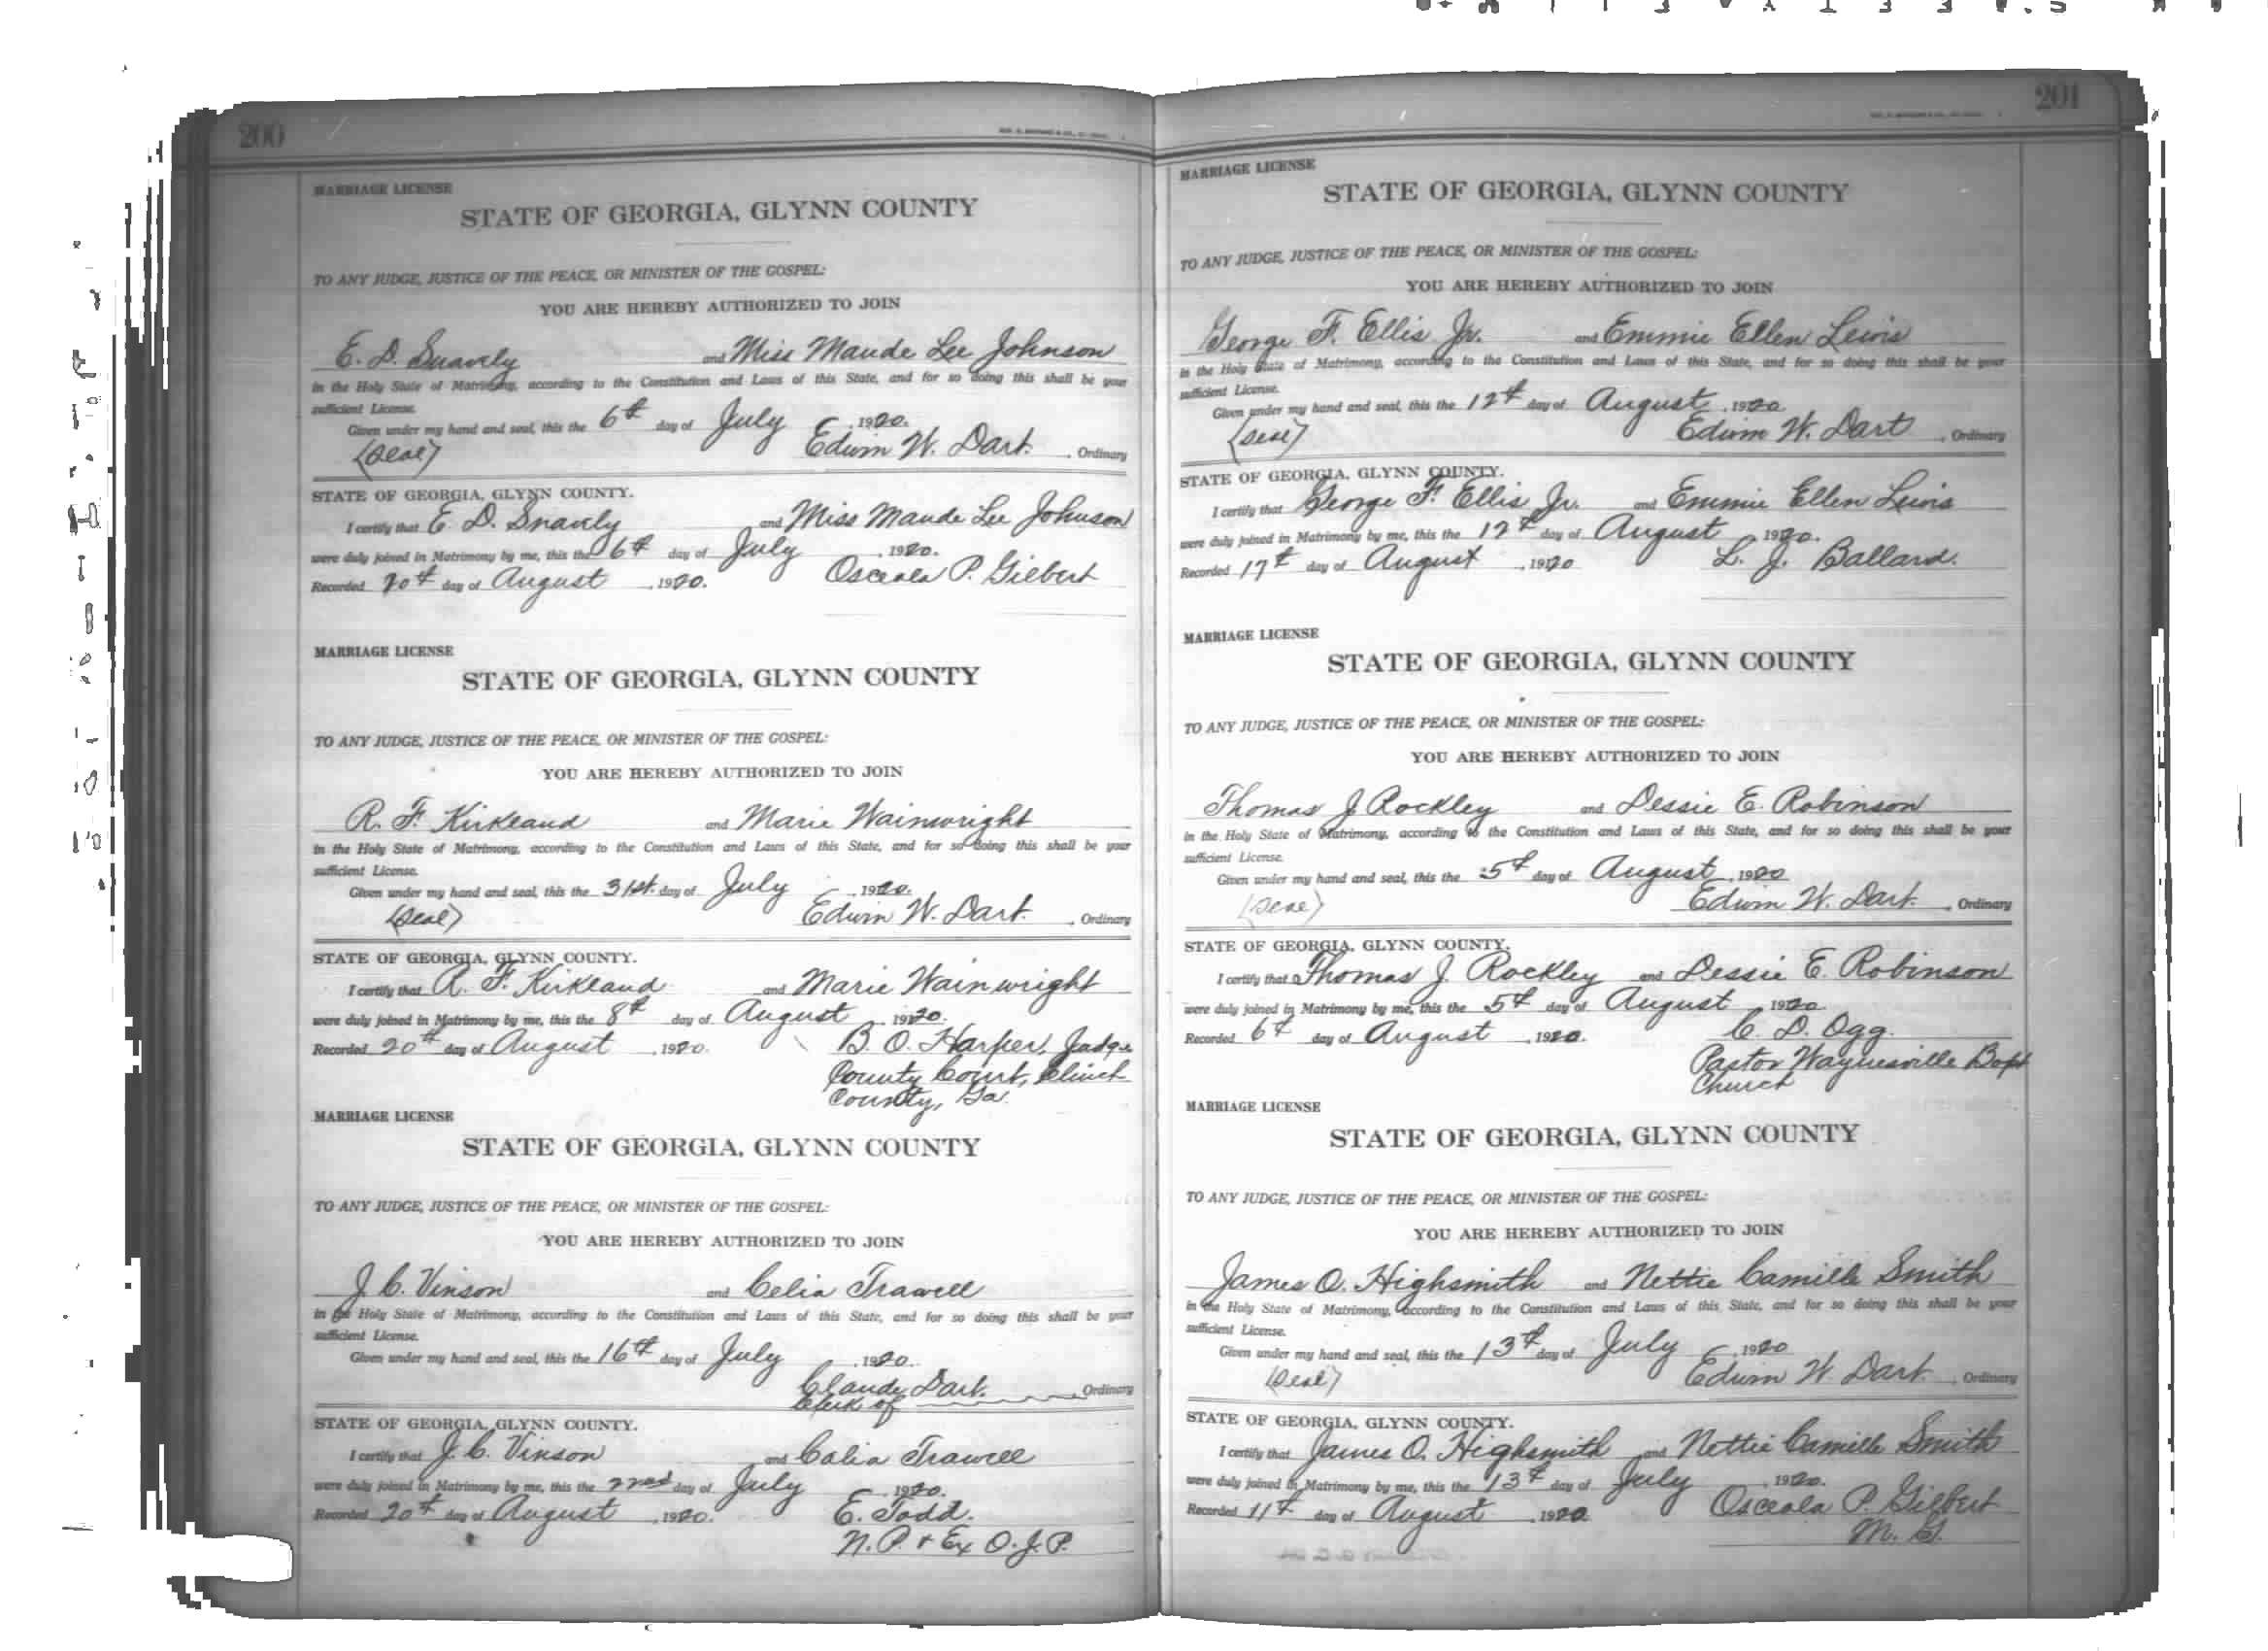 200
MARRIAGE LICENSE
STATE OF GEORGIA, GLYNN COUNTY
TO ANY JUDGE, JUSTICE OF THE PEACE, OR MINISTER OF THE GOSPEL:
YOU ARE HEREBY AUTHORIZED TO JOIN
E. D. Snavely and Miss Maude Lee Johnson
in the Holy State of Matrimony, according to the Constitution and Laws of this State, and for so doing this shall be your
sufficient License.
Given under my hand and seal, this the 6th day of July, 1920.
(Seal) Edwin W. Dart., Ordinary
STATE OF GEORGIA, GLYNN COUNTY.
I certify that E. D. Snavely and Miss Maude Lee Johnson
were duly joined in Matrimony by me, this the 6th day of July, 1920.
Recorded 20th day of August, 1920. Osceola P. Gilbert
MARRIAGE LICENSE
STATE OF GEORGIA, GLYNN COUNTY
TO ANY JUDGE, JUSTICE OF THE PEACE, OR MINISTER OF THE GOSPEL:
YOU ARE HEREBY AUTHORIZED TO JOIN
R. F. Kirkland and Marie Wainwright
in the Holy State of Matrimony, according to the Constitution and Laws of this State, and for so doing this shall be your
sufficient License.
Given under my hand and seal, this the 31st. day of July, 1920.
(Seal) Edwin W. Dart., Ordinary
STATE OF GEORGIA, GLYNN COUNTY.
I certify that R. F. Kirkland and Marie Wainwright
were duly joined in Matrimony by me, this the 8th day of August, 1920.
Recorded 20th day of August, 1920. B. O. Harper, Judge
County Court, Clinch
County, Ga.
MARRIAGE LICENSE
STATE OF GEORGIA, GLYNN COUNTY
TO ANY JUDGE, JUSTICE OF THE PEACE, OR MINISTER OF THE GOSPEL:
YOU ARE HEREBY AUTHORIZED TO JOIN
J. C. Vinson and Celia Trawell
in the Holy State of Matrimony, according to the Constitution and Laws of this State, and for so doing this shall be your
sufficient License.
Given under my hand and seal, this the 16th day of July, 1920.
Claude Dart., Ordinary
Clerk of
STATE OF GEORGIA, GLYNN COUNTY.
I certify that J. C. Vinson and Calia Trawell
were duly joined in Matrimony by me, this the 22nd day of July, 1920.
Recorded 20th day of August, 1920. E. Todd.
N. P. + Ex O. J. P.
201
MARRIAGE LICENSE
STATE OF GEORGIA, GLYNN COUNTY
TO ANY JUDGE, JUSTICE OF THE PEACE, OR MINISTER OF THE GOSPEL:
YOU ARE HEREBY AUTHORIZED TO JOIN
George F. Ellis Jr. and Emmie Ellen Lewis
in the Holy State of Matrimony, according to the Constitution and Laws of this State, and for so doing this shall be your
sufficient License.
Given under my hand and seal, this the 12th day of August, 1920.
(Seal) Edwin W. Dart, Ordinary
STATE OF GEORGIA, GLYNN COUNTY.
I certify that George F. Ellis Jr. and Emmie Ellen Lewis
were duly joined in Matrimony by me, this the 12th day of August 1920.
Recorded 17th day of August, 1920 L. J. Ballard.
MARRIAGE LICENSE
STATE OF GEORGIA, GLYNN COUNTY
TO ANY JUDGE, JUSTICE OF THE PEACE, OR MINISTER OF THE GOSPEL:
YOU ARE HEREBY AUTHORIZED TO JOIN
Thomas J Rockley and Dessie E. Robinson
in the Holy State of Matrimony, according to the Constitution and Laws of this State, and for so doing this shall be your
sufficient License.
Given under my hand and seal, this the 5th day of August, 1920
(Seal) Edwin W. Dart., Ordinary
STATE OF GEORGIA, GLYNN COUNTY.
I certify that Thomas J. Rockley and Dessie E. Robinson
were duly joined in Matrimony by me, this the 5th day of August 1920
Recorded 6th day of August, 1920. C. D. Ogg.
Pastor Waynesville Bapt
Church
MARRIAGE LICENSE
STATE OF GEORGIA, GLYNN COUNTY
TO ANY JUDGE, JUSTICE OF THE PEACE, OR MINISTER OF THE GOSPEL:
YOU ARE HEREBY AUTHORIZED TO JOIN
James O. Highsmith and Nettie Camille Smith
in the Holy State of Matrimony, according to the Constitution and Laws of this State, and for so doing this shall be your
sufficient License.
Given under my hand and seal, this the 13th day of July, 1920
(Seal) Edwin W. Dart., Ordinary
STATE OF GEORGIA, GLYNN COUNTY.
I certify that James O. Highsmith and Nettie Camille Smith
were duly joined in Matrimony by me, this the 13th day of July, 1920.
Recorded 11th day of August, 1920 Osceola P. Gilbert
M. G.